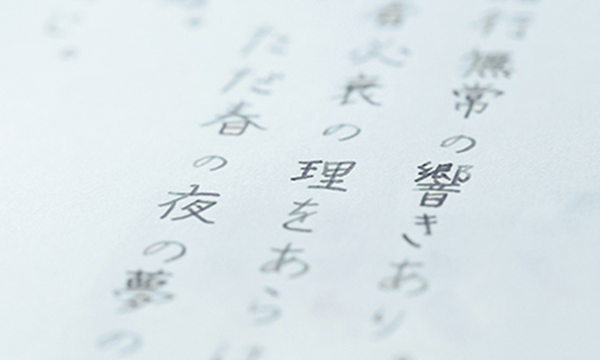 行無常の響きあり
者必衰の理をあらは
ただ春の夜の夢の